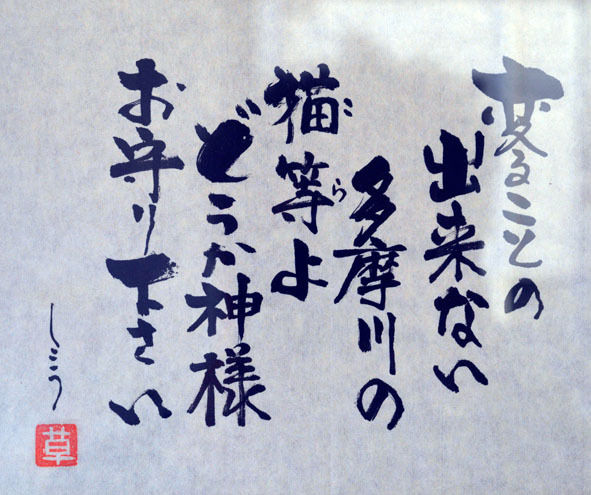 変ることの
出来ない
多摩川の
猫等よ
こ
ら
どうか神様
お守り下さい
しこう
草